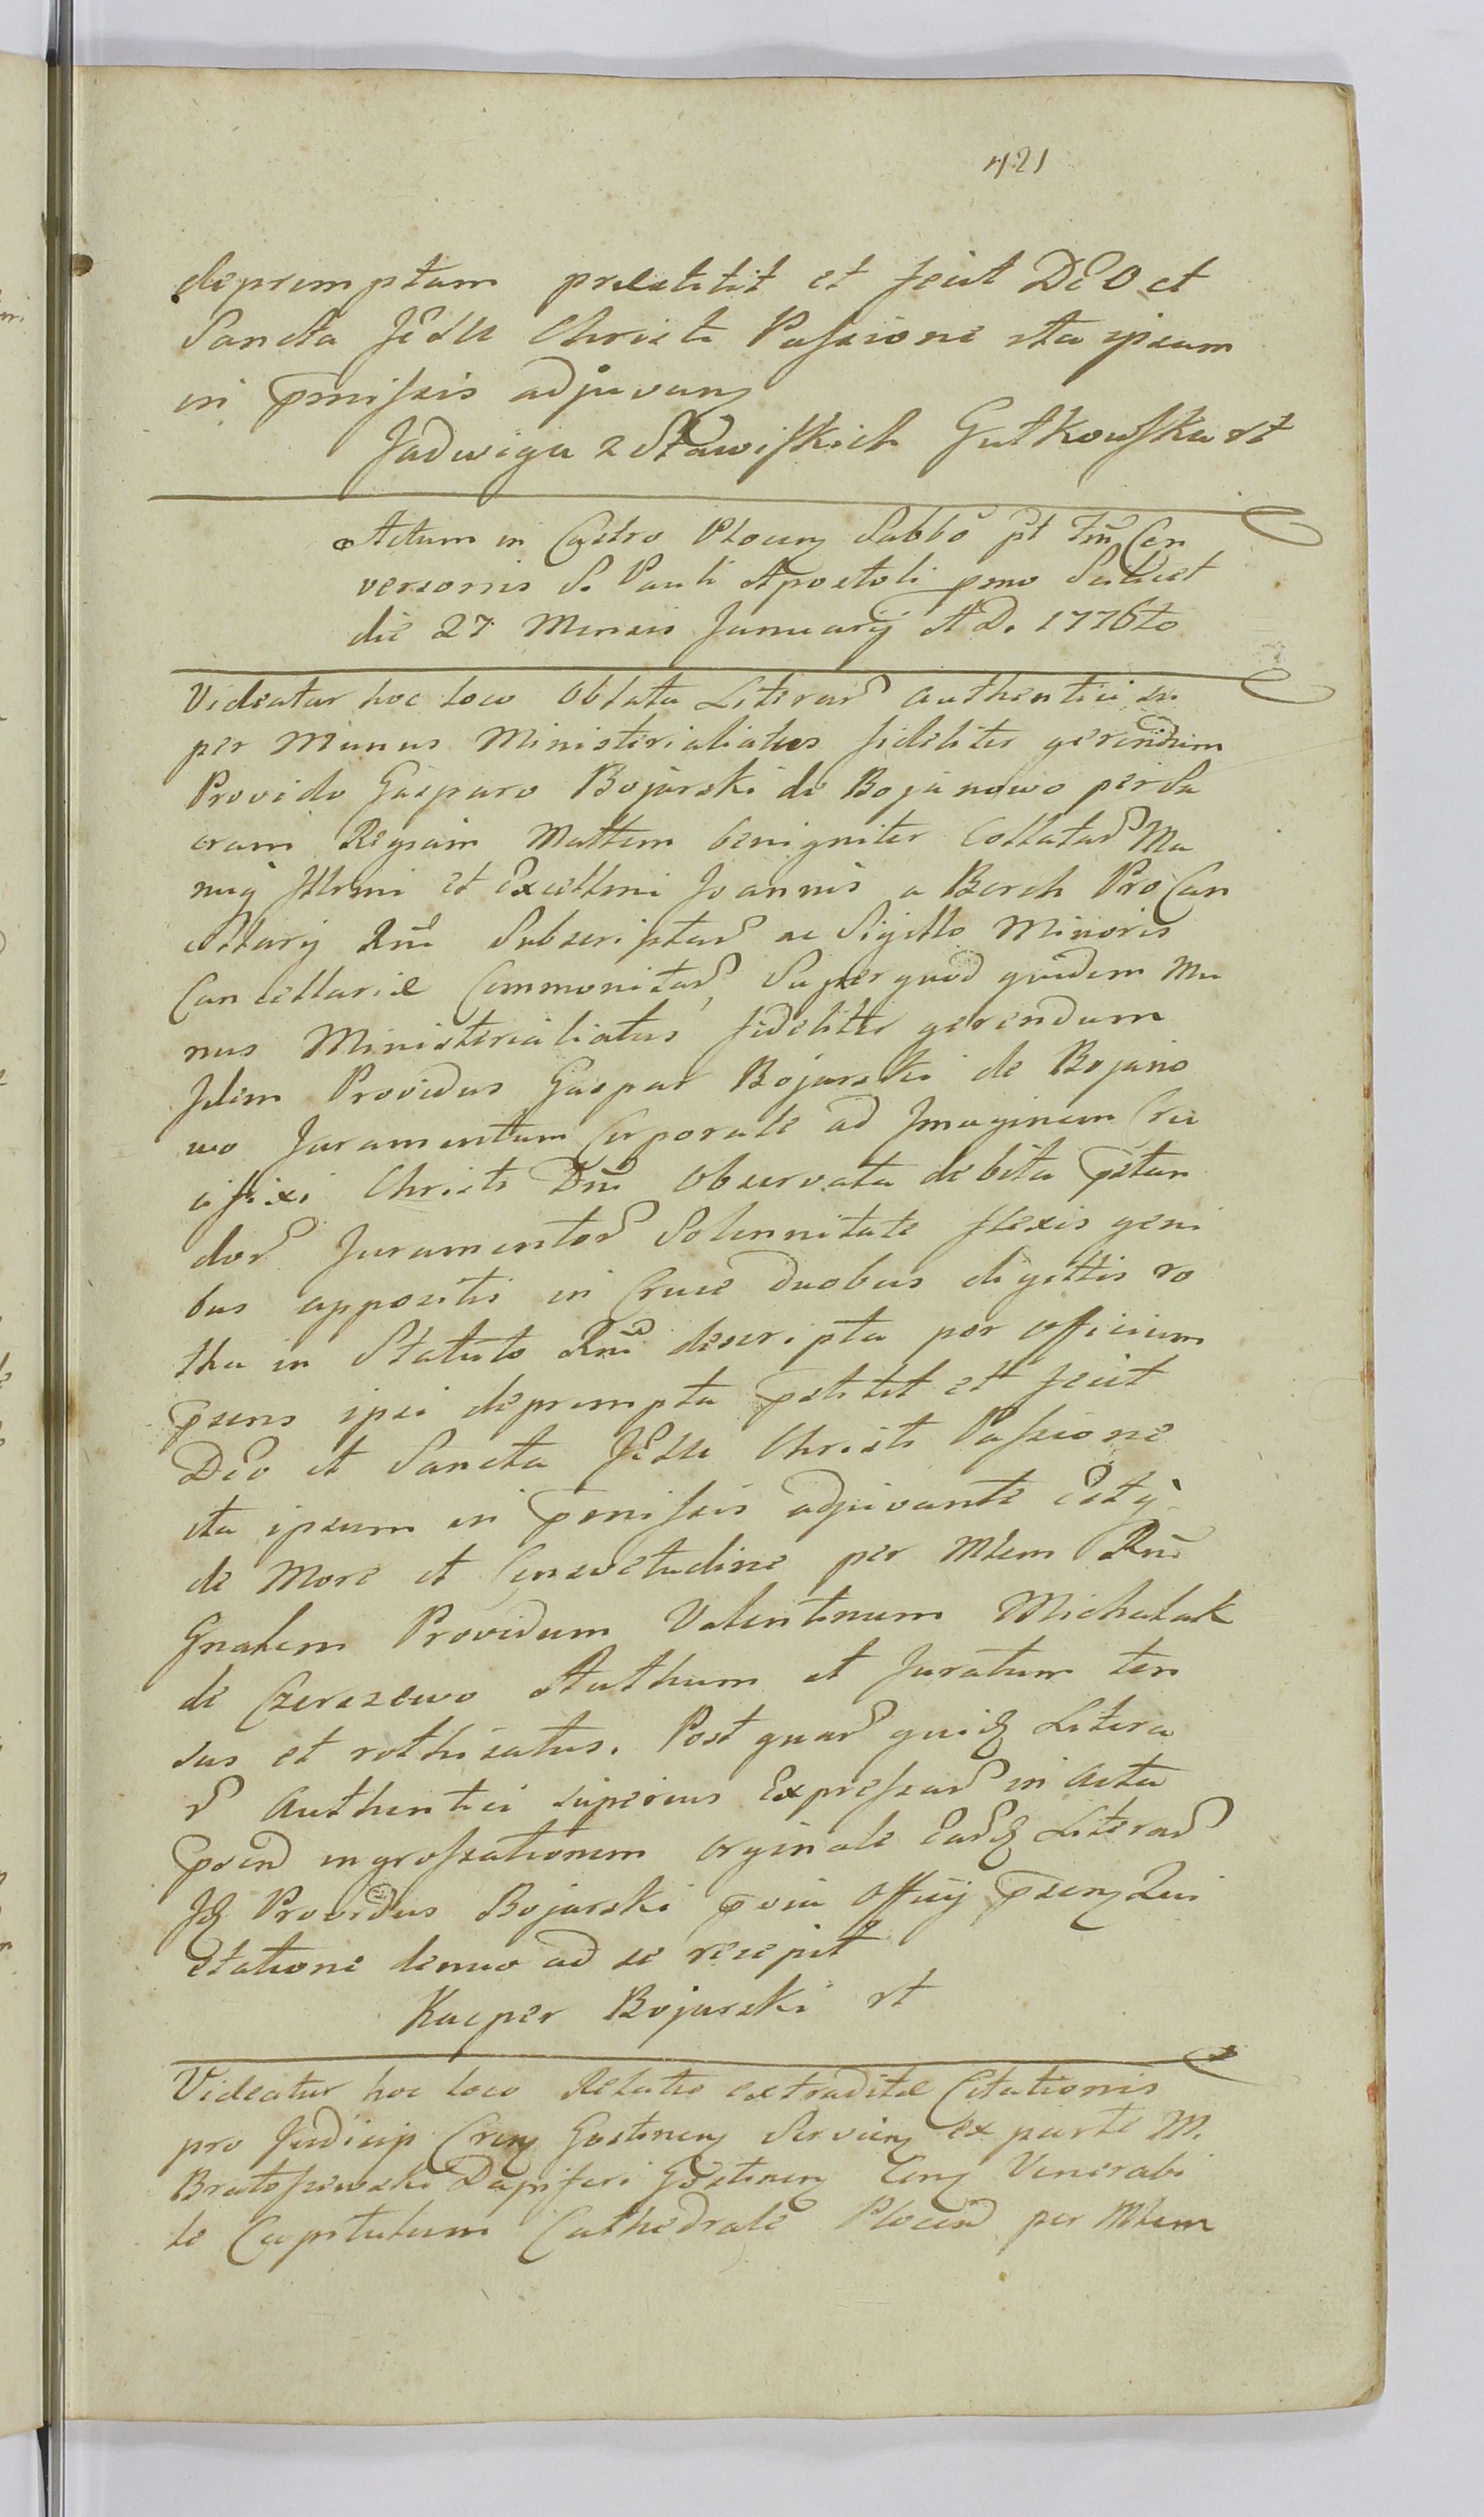 421
depromptam præstitit et fecit DEO et
Sancta JESU Christi Passione ita ipsum
in pmissis adjuvan
Jadwiga z Sławiskich Gutkowska rt
Actum in Castro Plocen Sabbo pt Fm Con
versonis S. Pauli Apostoli pmo Scilicet
die 27 Mensis Januarij A D. 1776to
Videatur hoc loco Oblata Literar Authentici su
per Munus Ministerialiatus fideliter gerendum
Provido Gasparo Bojarski de Bojanowo per Sa
cram Regiam Mattem benigniter Collatar Ma
nuq Illrmi et Excellmi Joannis a Borch ProCan
cellarij Rni Subscriptar ac Sigillo Minoris
Cancellariæ Communitar, Super quod quidem Mu
nus Ministerialiatus fideliter gerendum
Idem Providus Gaspar Bojarski de Bojano
wo Juramentum Corporale ad Imaginem Cru
cifixi Christi Dni Observata debita pstan
dor Juramentor Solennitate flexis geni
bus appositis in Cruce duobus digittis ro
tha in Statuto Rni descripta per Officium
psens ipsi deprompta pstitit et fecit
DEO et Sancta JESU Christi Passione
ita ipsum in pmissis adjuvante
de More et Consvetudine per Mtem Rni
Gnalem Providum Valentinum Michalak
de Czerszewo Authum et Juratum ten
tus et rothisatus. Post quar quiđ Litera
r Authentici superius Expressar in Acta
psend ingrossationem orginale Literar
Providus Bojarski Officij psen Qui
etatione denuo ad se recepit
Kacper Bojarski rt
Videatur hoc loco Relatio extraditæ Citationis
pro Judicijs Cren Gostinen Servien ex parte M.
Bratoszewski Dapiferi Gostinen Con Venerabi
le Capitulum Cathedrale Plocen per Mtem